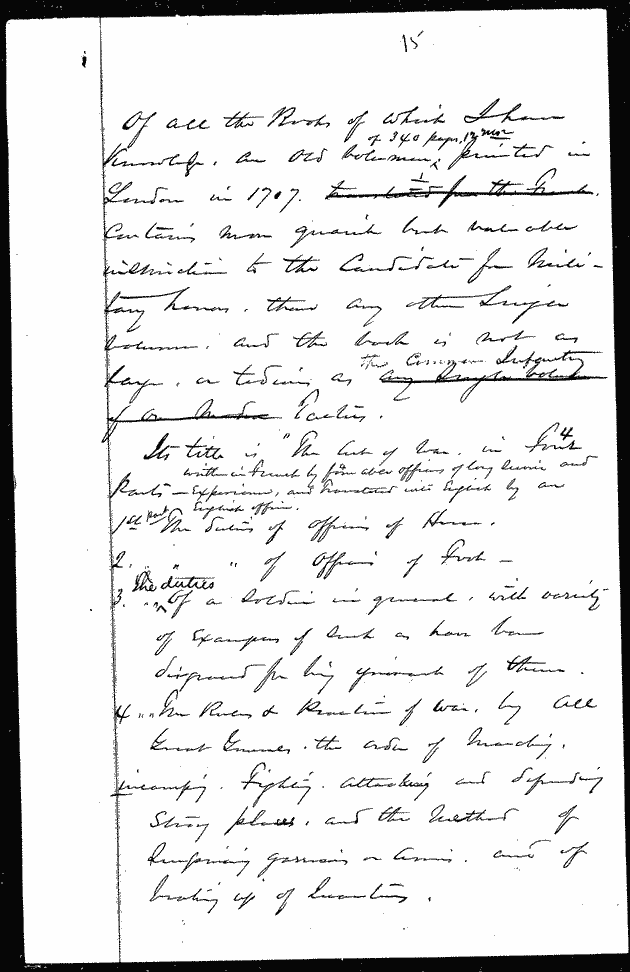 15
Of all the Books of which I have
of 340 pages, 12 mo
Knowledge, an old volume, printed in
London in 1707. translated from the French.
Contains more quaint but valuable
instruction to the Candidate for Mili-
tary honors, than any other Single
volume, and the book is not as
the Common Infantry
large, or tedious as any Single volume
of our Modern Tactics.
Its title is "The Art of War, in Four 4
written in French by four able officers of long Service and
Parts - Experience, and translated into English by an
English officer.
1st part The duties of Officers of Horse.
2. " " " of Officers of Foot -
The duties
3. " Of a Soldier in general, with variety
of Examples of Such as have been
disgraced for being ignorant of them.
4 " " The Rules & Practice of War, by all
Great Generals, the order of Marching,
incamping, Fighting, attacking and defending
Strong places, and the Method of
Surprising garrisons or Armies, and of
beating up of Quarters.